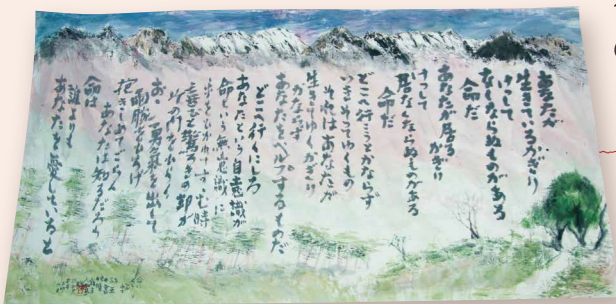 あなたが
生きているかぎり
けっして
なくならぬものがある
命だ
あなたが居るかぎり
けっして
居なくならぬものがある
命だ
どこへ行こうとかならず
いっしょについてゆくもの
それはあなたが
生きてゆくかぎり
かならず
あなたをヘルプするものだ
どこへ行くにしろ
あなたという自意識が
命という無意識に
時
喜びと驚きの都が
その門をひらく
おゝ勇気を出して
両腕をひろげ
抱きしめてごらん
あなたは知るだろう
命は
誰よりも
あなたを愛していると